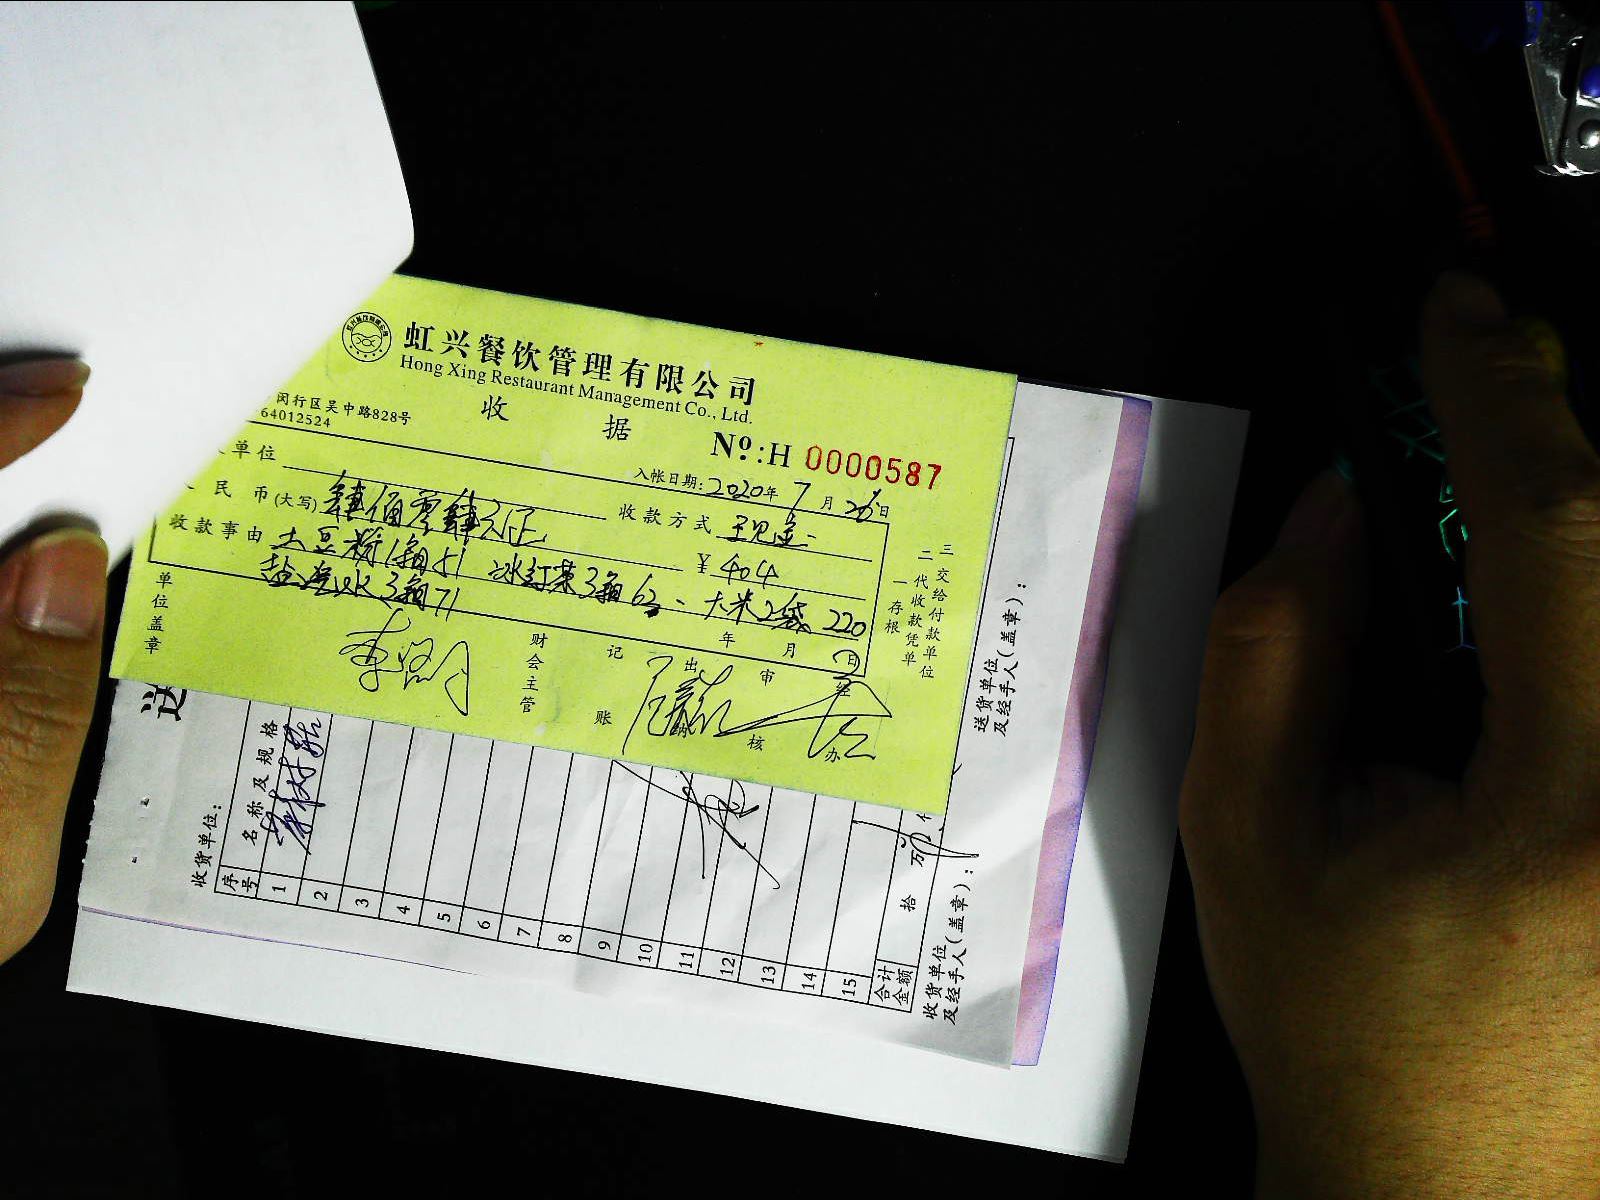 虹兴餐饮管理有限公司
Hong Xing Restaurant Management Co., Ltd.
闵行区吴中路828号
64012524
收 据
Nº:H 0000587
单位
入帐日期:2020年7月26日
民 币(大写) 肆佰零肆元正
收款方式 现金
收款事由 土豆粉1箱51 冰红茶3箱62、大米2袋 220
¥ 404
盐汽水3箱71
单位盖章
财会主管
记账
出
审核
经办
年 月 日
一存根
二代收款凭单
三交给付款单位
送
收货单位:
序号
名称及规格
1
2
3
4
5
6
7
8
9
10
11
12
13
14
15
合计金额
拾 万
收货单位及经手人(盖章):
送货单位及经手人(盖章):